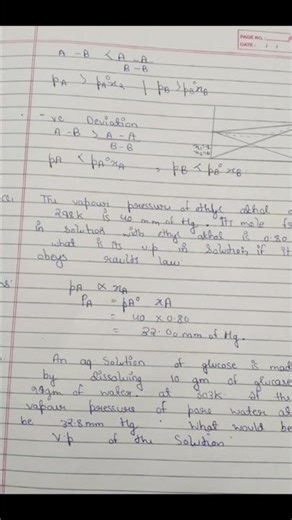 PAGE NO.
DATE : / /
A - B < A - A
B - B
pA > pA°xA | pB > pB°xB
-ve Deviation
A - B > A - A
B - B
pA < pA°xA , pB < pA°xB
The vapour pressure of ethyl alkohol a
298k is 40 mm of Hg. Its mole fr
in solution with ethyl alkohol is 0.80
what is its v.p in solution if it
obeys raults law
pA ∝ xA
PA = pA° xA
= 40 × 0.80
= 32.00 mm of Hg.
An aq solution of glucose is made
by dissolving 10 gm of glucose
90gm of water at 303K If the
vapour pressure of pure water at
be 32.8mm Hg. What would be
V.p of the Solution